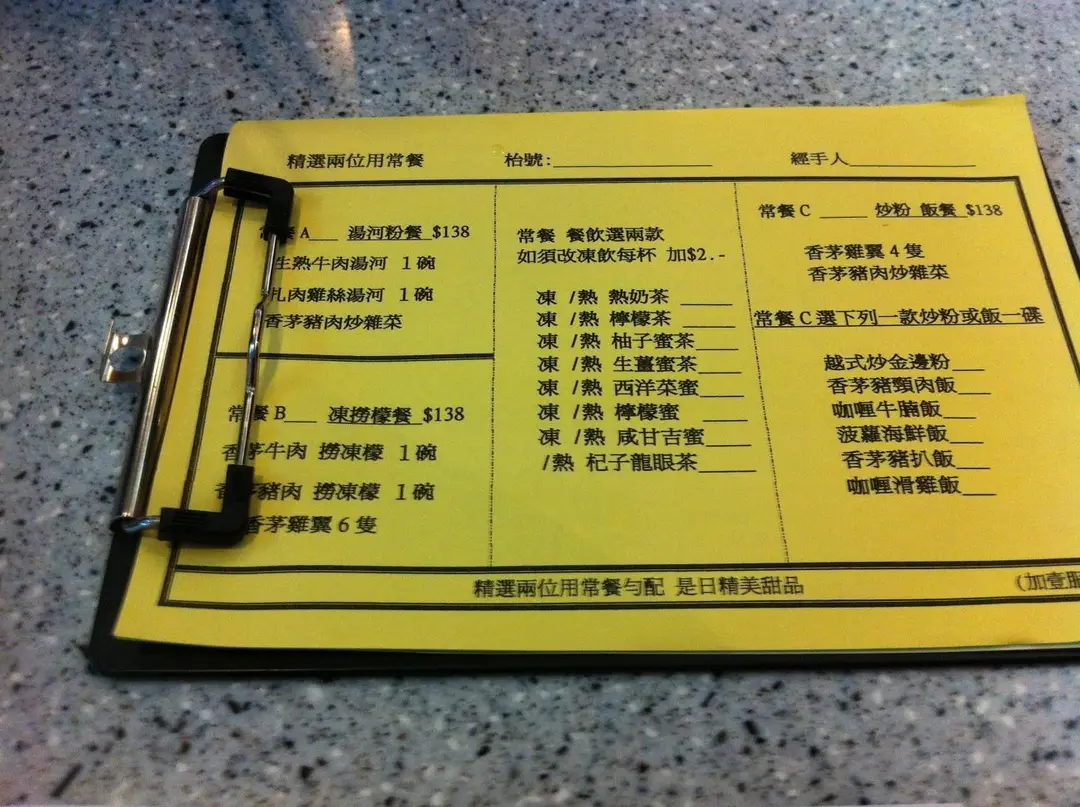 精選兩位用常餐 枱號:__________ 經手人__________
餐 A___ 湯河粉餐 $138
生熟牛肉湯河 1碗
扎肉雞絲湯河 1碗
香茅豬肉炒雜菜
常餐 B___ 凍撈檬餐 $138
香茅牛肉 撈凍檬 1碗
香茅豬肉 撈凍檬 1碗
香茅雞翼 6 隻
常餐 餐飲選兩款
如須改凍飲每杯 加$2.-
凍 /熱 熱奶茶 ____
凍 /熱 檸檬茶 ____
凍 /熱 柚子蜜茶____
凍 /熱 生薑蜜茶____
凍 /熱 西洋菜蜜____
凍 /熱 檸檬蜜 ____
凍 /熱 咸甘吉蜜____
/熱 杞子龍眼茶_____
常餐 C _____ 炒粉 飯餐 $138
香茅雞翼 4 隻
香茅豬肉炒雜菜
常餐 C 選下列一款炒粉或飯一碟
越式炒金邊粉___
香茅豬頸肉飯___
咖喱牛腩飯___
菠蘿海鮮飯___
香茅豬扒飯___
咖喱滑雞飯___
精選兩位用常餐勻配 是日精美甜品 (加壹